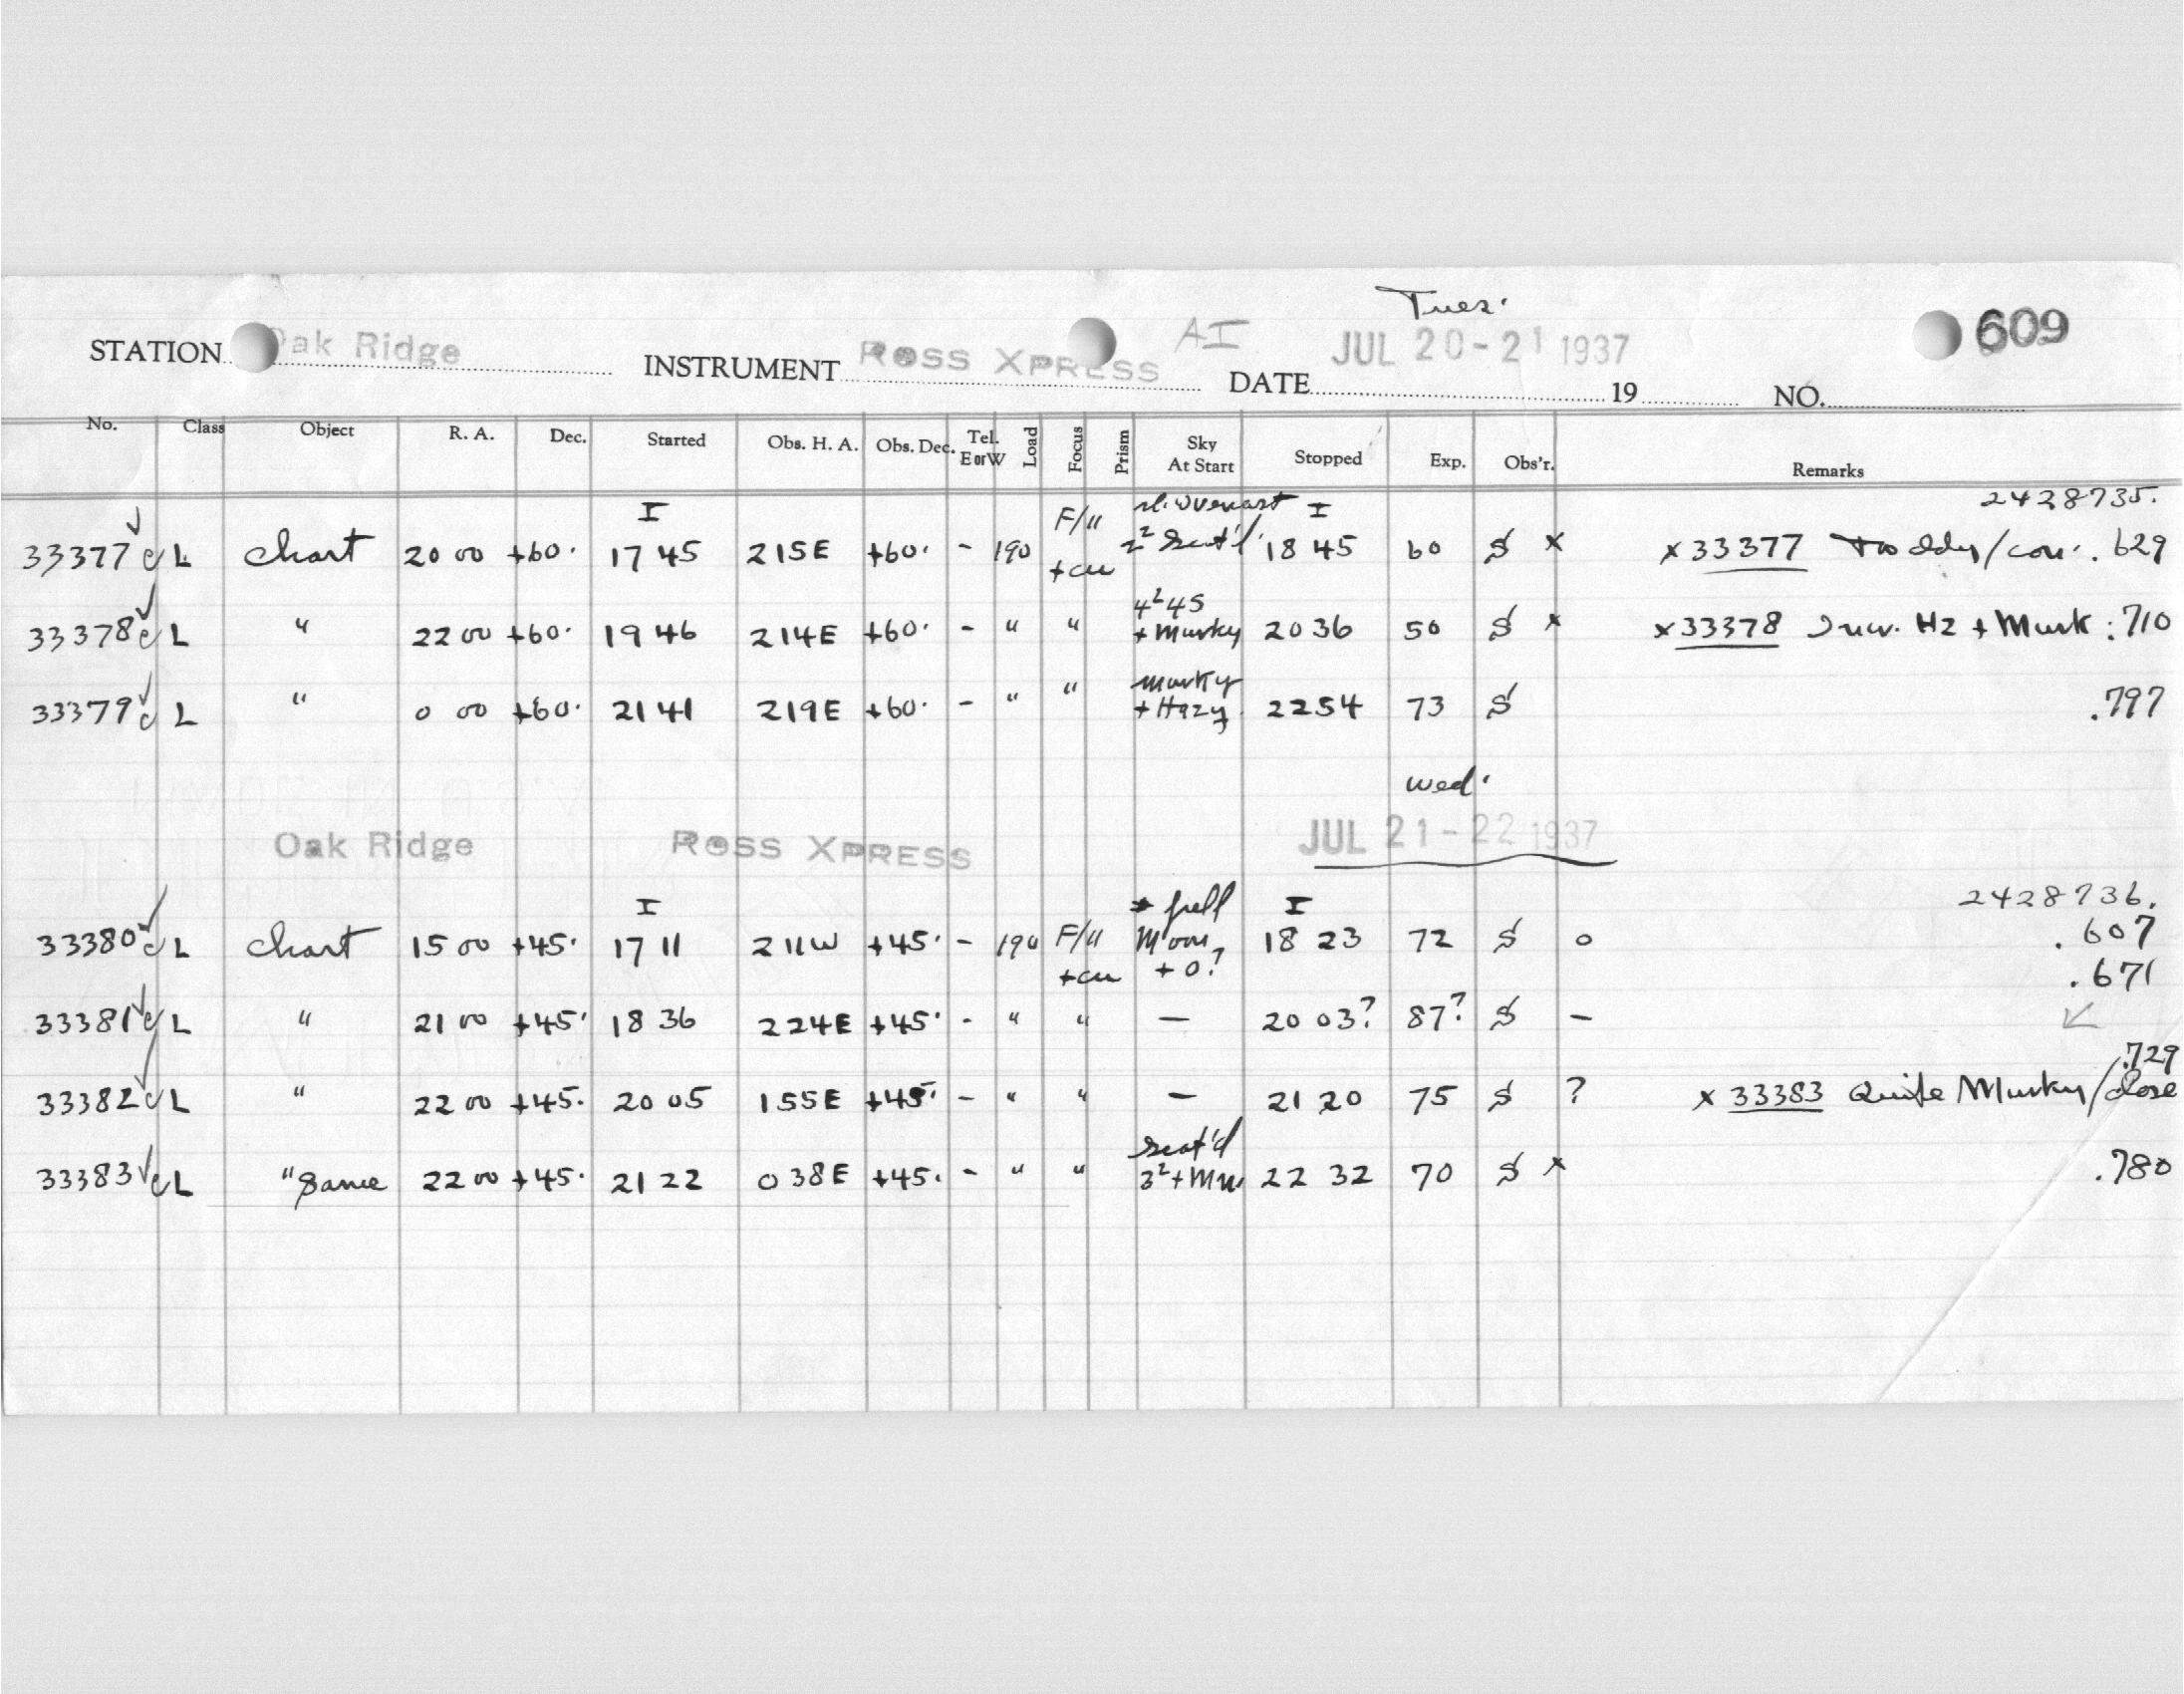 Tues.
STATION Oak Ridge INSTRUMENT ROSS XPRESS AI DATE JUL 20-21 1937 19 NO. 609
No. Class Object R. A. Dec. Started Obs. H. A. Obs. Dec. Tel. E or W Load Focus Prism Sky At Start Stopped Exp. Obs'r. Remarks
I I 2428735.
33377 c L Chart 20 00 +60. 17 45 2 15 E +60. - 190 F/11 + cu sl. overcast 2² Scat'd. 18 45 60 S x x 33377 . 629
33378 c L " 22 00 +60. 19 46 2 14 E +60. - " " 4² 45 + Murky 20 36 50 S x x 33378 Incr. Hz + Murk : 710
33379 c L " 0 00 +60. 21 41 2 19 E +60. - " " Murky + Hazy 22 54 73 S .797
Wed.
Oak Ridge ROSS XPRESS JUL 21-22 1937
I I 2428736.
33380 c L Chart 15 00 +45. 17 11 2 11 W +45. - 190 F/11 + cu full Moon + 0? 18 23 72 S o . 607
.671
33381 c L " 21 00 +45. 18 36 2 24 E +45. - " " — 20 03? 87? S —
.729
33382 c L " 22 00 +45. 20 05 1 55 E +45. - " " — 21 20 75 S ? x 33383 Quite Murky / close
33383 c L " Same 22 00 +45. 21 22 0 38 E +45. - " " Scat'd 3² + Mu. 22 32 70 S x .780